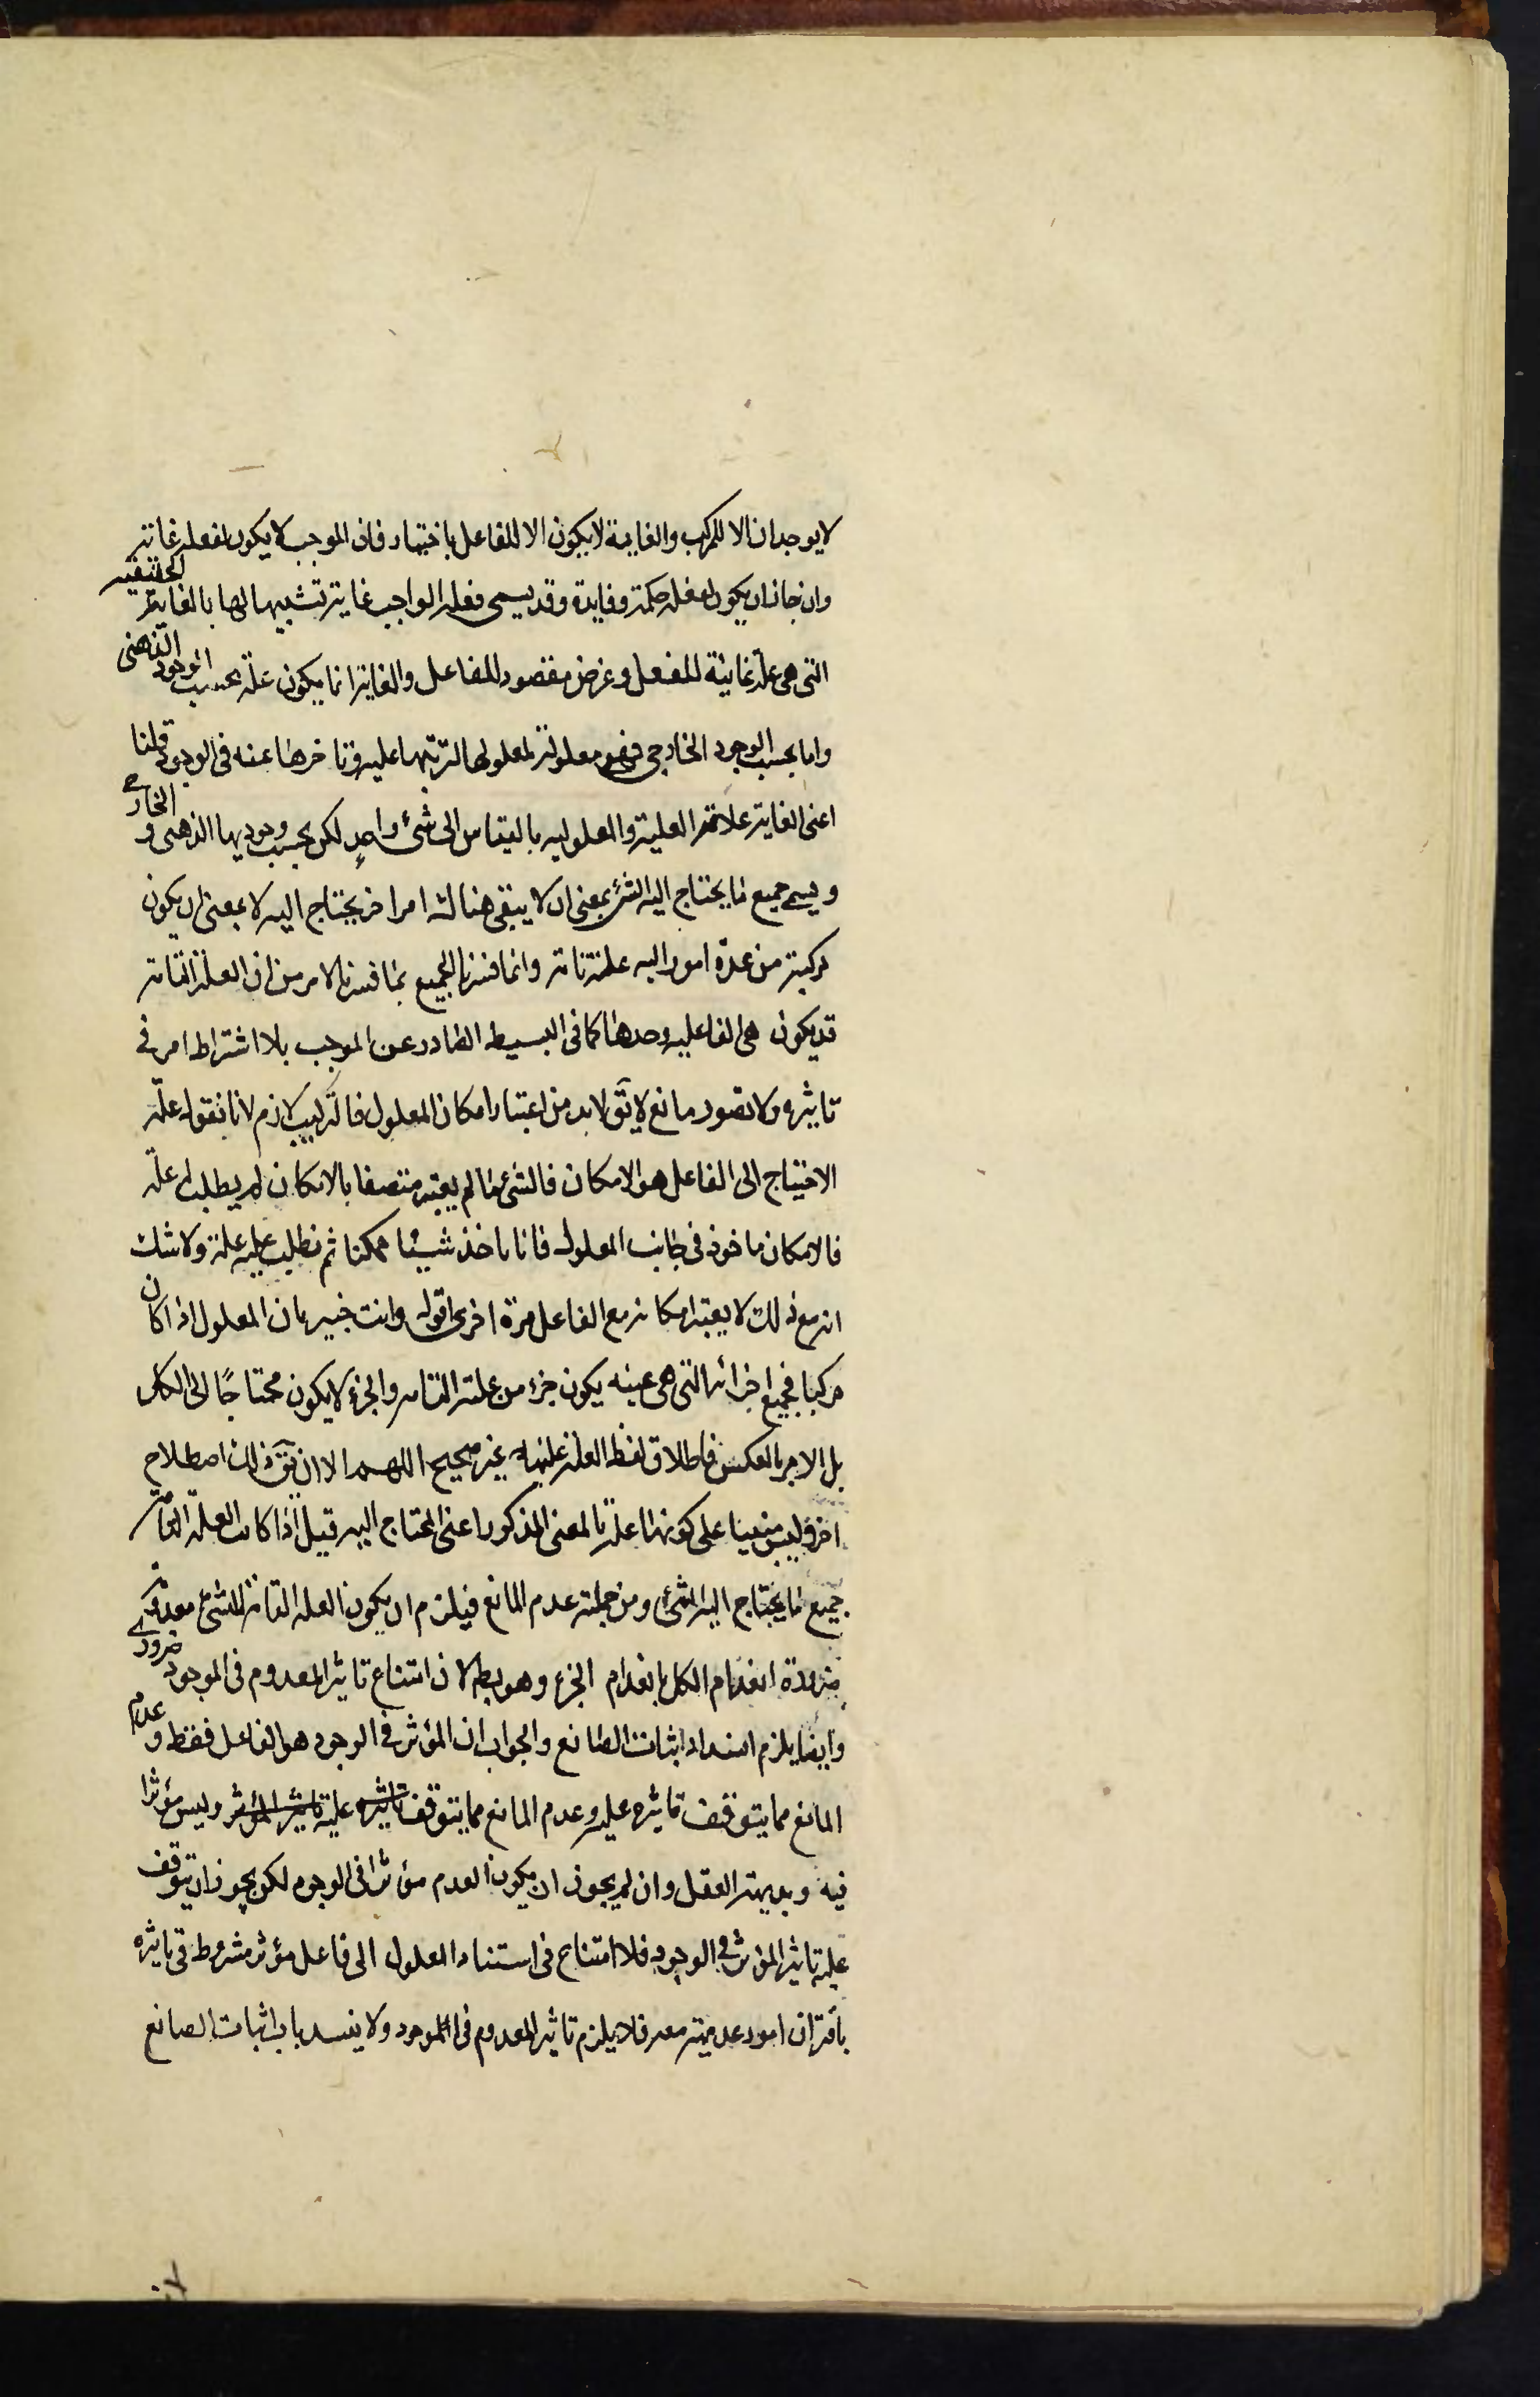 لا يوجدان الا للمركب والغاية لا يكون الا للفاعل باختيار فان الموجب لا يكون لفعله غاية
وان جاز ان يكون لفعله حكمة وفايدة وقد يسمى فعله الواجب غاية تشبيها لها بالغاية الحقيقية
التى هى علة غائية للفعل وغرض مقصود للفاعل والغاية انما يكون علة بحسب الوجود الذهنى
واما بحسب الوجود الخارجى فهو معلولة لمعلولها لترتبها عليه وتاخرها عنه فى الوجود قلنا
اعنى الغاية علاقة العلية والمعلولية بالقياس الى شئ واحد لكن بحسب وجوديها الذهنى و الخارجى
ويسمى جميع ما يحتاج اليه الشئ بمعنى ان لا يبقى هناك امر اخر يحتاج اليه لا بمعنى ان يكون
مركبة من عدة امور البه علة تامة وانما فسرنا الجميع بما فسرنا لامر من ان العلة التامة
قد يكون هى الفاعلية وحدها كما فى البسيط الصادر عن الموجب بلا اشتراط امر فى
تاثيره ولا تصور مانع لا يق لا بد من اعتبار امكان المعلول فالتركيب لازم لانا نقول علة
الاحتياج الى الفاعل هو الامكان فالشئ ما لم يعتبر متصفا بالامكان لم يطلب له علة
فالامكان ماخوذ فى جانب المعلول فانا ناخذ شيئا ممكنا ثم نطلب عليه علة ولا شك
انه مع ذلك لا يعتبر امكانه مع الفاعل مرة اخرى اقول وانت خبير بان المعلول اذا كان
مركبا فجميع اجزائه التى هى عينه يكون جزء من علته التامه والجزء لا يكون محتاجًا الى الكل
بل الامر بالعكس فاطلاق لفظ العلة عليها غير صحيح اللهم الا ان يق ذلك اصطلاح
اخر وليس مبنيا على كونها علة بالمعنى المذكور اعنى المحتاج اليه قيل اذا كانت العلة التامة
جميع ما يحتاج اليه الشئ ومن جملته عدم المانع فيلزم ان يكون العله التامة للشئ معدومة
ضرورة انعدام الكل بانعدام الجزء وهو بط لان امتناع تاثير المعدوم فى الموجود ضرورى
وايضا يلزم انسداد اثبات الصانع والجواب ان المؤثر فى الوجود هو الفاعل فقط و عدم
المانع مما يتوقف تاثيره عليه وعدم المانع مما يتوقف تاثيره عليه تاثير المؤثر وليس مؤثرا
فيه وبديهة العقل وان لم يجوز ان يكون العدم مؤثرا فى الوجود لكن يجوز ان يتوقف
عليه تاثير المؤثر فى الوجود فلا امتناع فى استناد المعلول الى فاعل مؤثر مشروط فى تاثيره
باقتران امور عدمية معه فلا يلزم تاثير المعدوم فى الموجود ولا ينسد باب اثبات الصانع